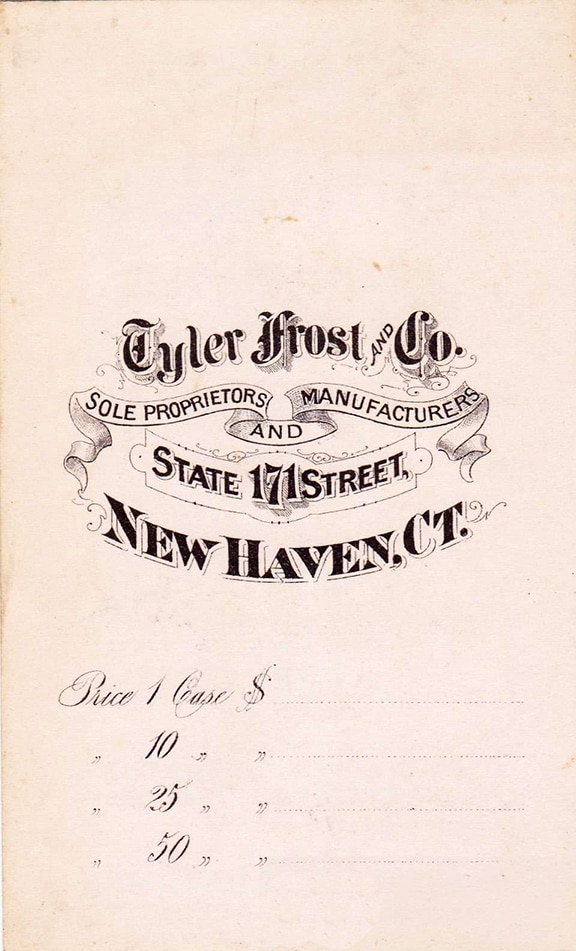 Tyler Frost AND Co.
SOLE PROPRIETORS AND MANUFACTURERS
STATE 171 STREET,
NEW HAVEN, CT.
Price 1 Case $
„ 10 „ „
„ 25 „ „
„ 50 „ „